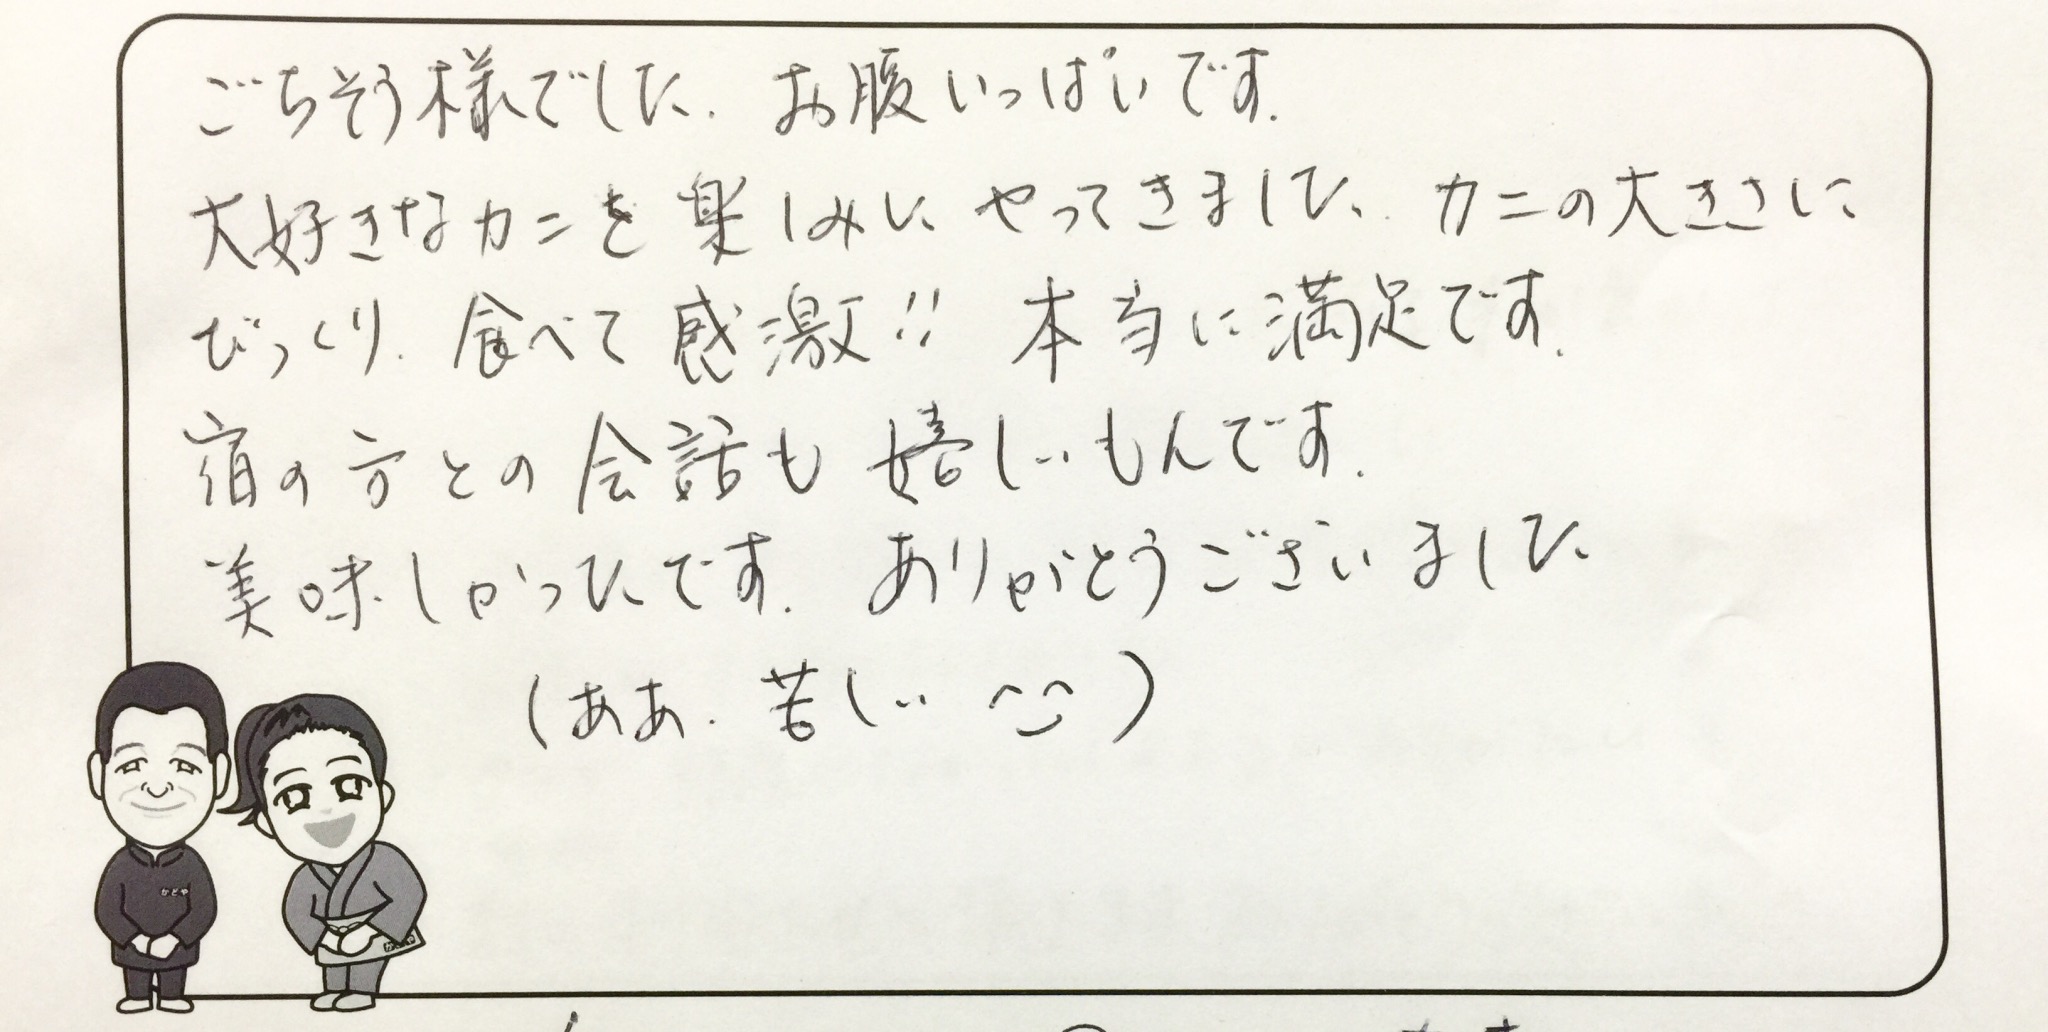 ごちそう様でした. お腹いっぱいです.
大好きなカニを楽しみにやってきました. カニの大きさに
びっくり. 食べて感激!! 本当に満足です.
宿の方との会話も嬉しいもんです.
美味しかったです. ありがとうございました
(ああ. 苦しい ^◡^)
かどや